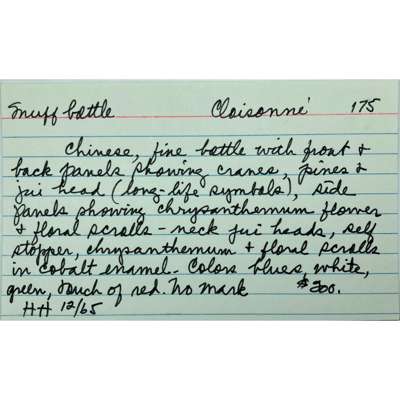 Snuff bottle Cloisonné 175
Chinese, fine bottle with front &
back panels showing cranes, pines &
jui head (long-life symbols), side
panels showing chrysanthemum flower
& floral scrolls - neck jui heads, self
stopper, chrysanthemum & floral scrolls
in cobalt enamel. Colors blues, white,
green, touch of red. No mark $200.
HH 12/65